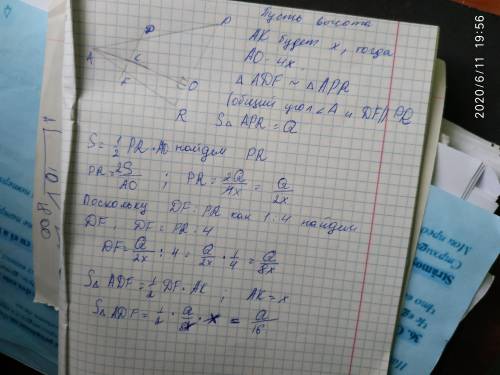 Пусть высота
AK будет x, тогда
AO = 4x
△ ADF ~ △ APR
(общий угол ∠A и DF || PR
S△ APR = Q
S = 1/2 PR · AO найдем PR
PR = 2S/AO ; PR = 2Q/4x = Q/2x
Поскольку DF : PR как 1 : 4 найдем
DF, DF = PR : 4
DF = Q/2x : 4 = Q/2x · 1/4 = Q/8x
S△ ADF = 1/2 DF · AK ; AK = x
S△ ADF = 1/2 · Q/8x · x = Q/16
A
D
P
K
O
F
R
2020/6/11 19:56